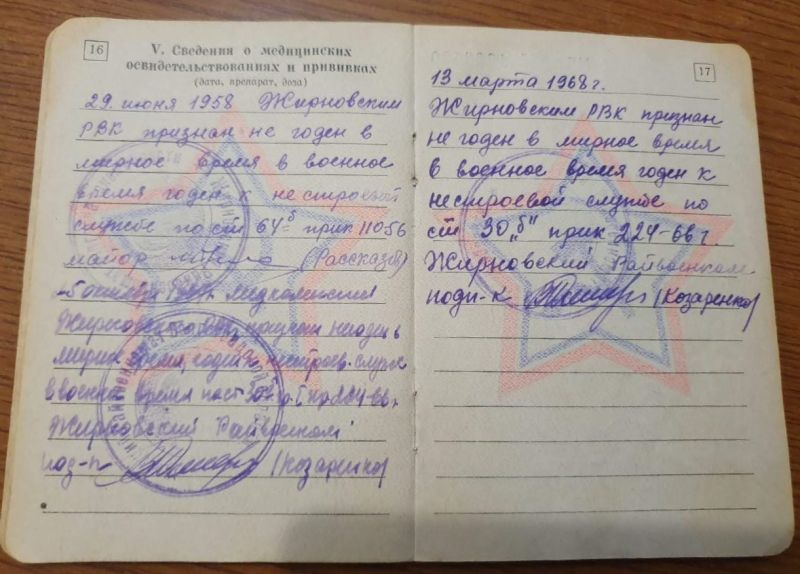 16
V. Сведения о медицинских
освидетельствованиях и прививках
(дата, препарат, доза)
29 июня 1958 Жирновским
РВК признан не годен в
мирное время в военное
время годен к нестроевой
службе по ст 64-б прик 110-56
майор (Рассказов)
5 октября медкомиссией
не годен в
мирн время, годен к нестроев. службе
в военное время по ст 30
Жирновский Райвоенком
под-к (Козаренко)
17
13 марта 1968 г.
Жирновским РВК признан
не годен в мирное время
в военное время годен к
нестроевой службе по
ст 30 „б" прик 224-66 г.
Жирновский Райвоенком
подп-к (Козаренко)